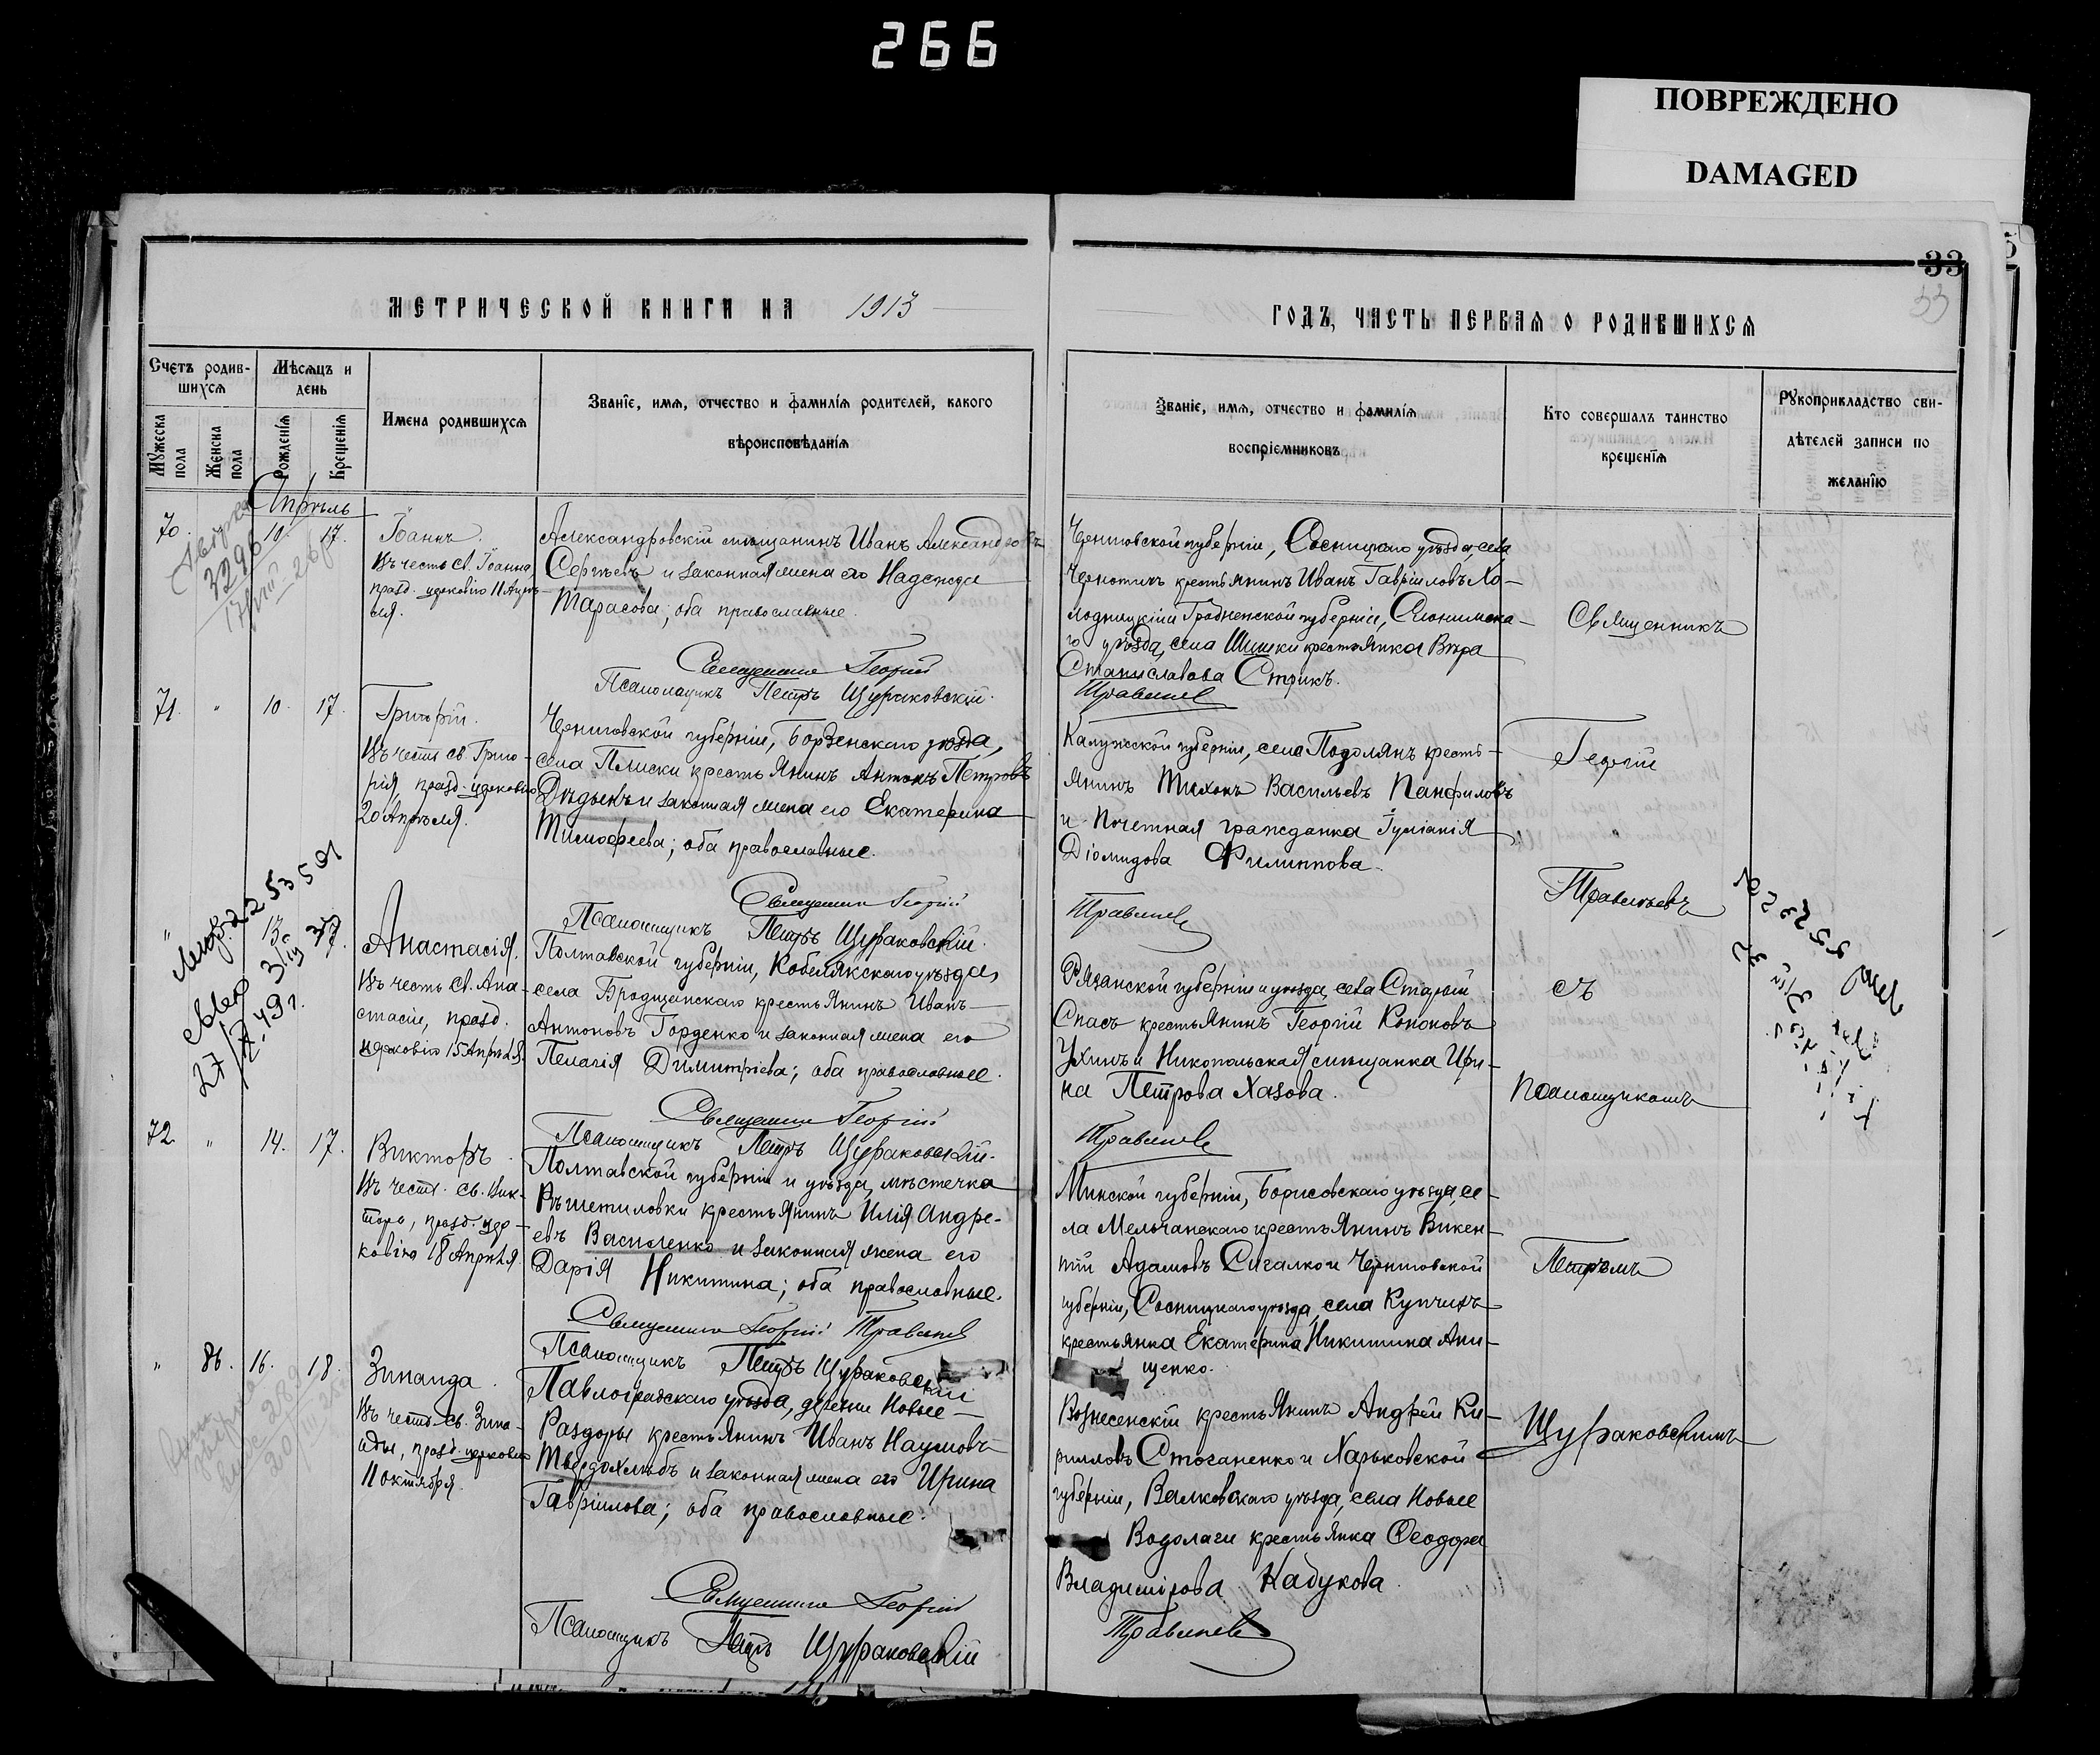 266
ПОВРЕЖДЕНО
DAMAGED
33
33
МЕТРИЧЕСКОЙ КНИГИ НА 1913
ГОДЪ, ЧАСТЬ ПЕРВАЯ О РОДИВШИХСЯ
Счетъ родив-
шихся
Мѣсяцъ и
день
Мужеска
пола
Женска
пола
Рожденія
Крещенія
Имена родившихся
Званіе, имя, отчество и фамилія родителей, какого
вѣроисповѣданія
Званіе, имя, отчество и фамилія
воспріемниковъ
Кто совершалъ таинство
крещенія
Рукоприкладство сви-
дѣтелей записи по
желанію
Апрѣль
70. 10. 17.
Іоаннъ.
Въ честь св. Іоанна,
празд. церковію 11 Апрѣ-
ля.
Александровскій мѣщанинъ Иванъ Александровъ
Сергѣевъ и законная жена его Надежда
Тарасова; оба православные.
Священникъ Георгій
Псаломщикъ Петръ Щураковскій.
Черниговской губерніи, Сосницкаго уѣзда, села
крестьянинъ Иванъ Гавріиловъ Хо-
лодницкій и Гродненской губерніи, Слонимска-
го уѣзда, села Шишки крестьянка Вѣра
Станиславова Стрикъ.
Травлѣевъ
71. " 10. 17.
Григорій.
Въ честь св. Григо-
рія, празд. церковію
20 Апрѣля.
Черниговской губерніи, Борзенскаго уѣзда,
села Плиски крестьянинъ Антонъ Петровъ
Дѣдынъ и законная жена его Екатерина
Тимофеева; оба православные.
Священникъ Георгій
Псаломщикъ Петръ Щураковскій.
Калужской губерніи, села Подолянъ кресть-
янинъ Тихонъ Васильевъ Панфиловъ
и Почетная гражданка Іуліанія
Діомидова Филиппова.
Травлѣевъ
3296
"
13. 17.
Анастасія.
Въ честь св. Ана-
стасіи, празд.
церковію 15 Апрѣля.
Полтавской губерніи, Кобелякскаго уѣзда,
села Бродщанскаго крестьянинъ Иванъ
Антоновъ Горденко и законная жена его
Пелагія Димитріева; оба православные.
Священникъ Георгій
Псаломщикъ Петръ Щураковскій.
Рязанской губерніи и уѣзда, села Старый
Спасъ крестьянинъ Георгій Кононовъ
Ухинъ и Никопольская мѣщанка Ири-
на Петрова Хазова.
Травлѣевъ
72 " 14. 17.
Викторъ.
Въ честь св. Вик-
тора, празд. цер-
ковію 18 Апрѣля.
Полтавской губерніи и уѣзда, мѣстечка
Рѣшетиловки крестьянинъ Илія Андре-
евъ Василенко и законная жена его
Дарія Никитина; оба православные.
Священникъ Георгій Травлѣевъ
Псаломщикъ Петръ Щураковскій
Минской губерніи, Борисовскаго уѣзда, се-
ла Мельчанскаго крестьянинъ Викен-
тій Адамовъ Сигалко и Черниговской
губерніи, Сосницкаго уѣзда, села Купчичъ
крестьянка Екатерина Никитина Они-
щенко.
" 86. 16. 18.
Зинаида.
Въ честь св. Зина-
иды, празд. церковію
11 октября.
Павлоградскаго уѣзда, деревни Новые
Раздоры крестьянинъ Иванъ Наумовъ
Твердохлѣбъ и законная жена его Ирина
Гавріилова; оба православные.
Священникъ Георгій
Псаломщикъ Петръ Щураковскій
Вознесенскій крестьянинъ Андрей Ки-
рилловъ Стоганенко и Харьковской
губерніи, Валковскаго уѣзда, села Новые
Водолаги крестьянка Ѳеодора
Владимірова Кабукова.
Травлѣевъ
Священникъ
Георгій
Травлѣевъ
съ
Псаломщикомъ
Петромъ
Щураковскимъ